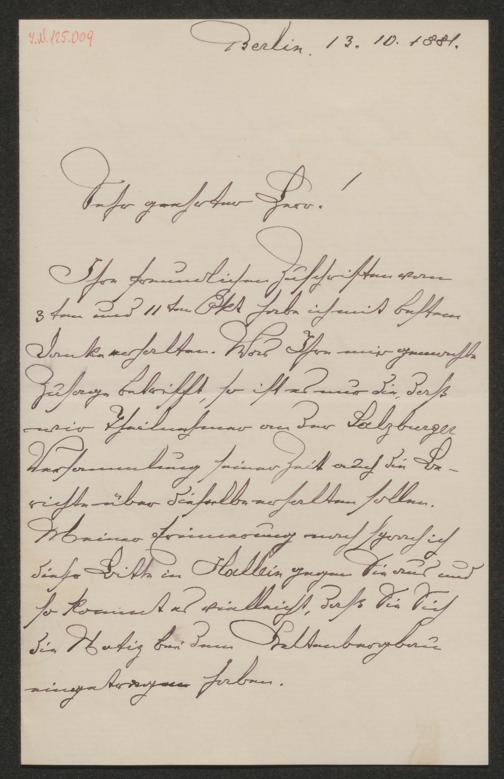 J.N. 125.009
Berlin. 13. 10. 1881.
Sehr geehrter Herr!
Ihre freundlichen Zuschriften vom
3ten und 11ten Okt habe ich mit bestem
Danke erhalten. Was Ihre mir gemachte
Zusage betrifft, so ist es nur die, daß
wir Theilnehmer an der Salzburger
Versammlung seiner Zeit auch die Be-
richte über dieselbe erhalten sollen.
Meiner Erinnerung nach sprach ich
diese Bitte in Hallein gegen Sie aus und
so kommt es vielleicht, daß Sie Sich
die Notiz bei dem
eingetragen haben.